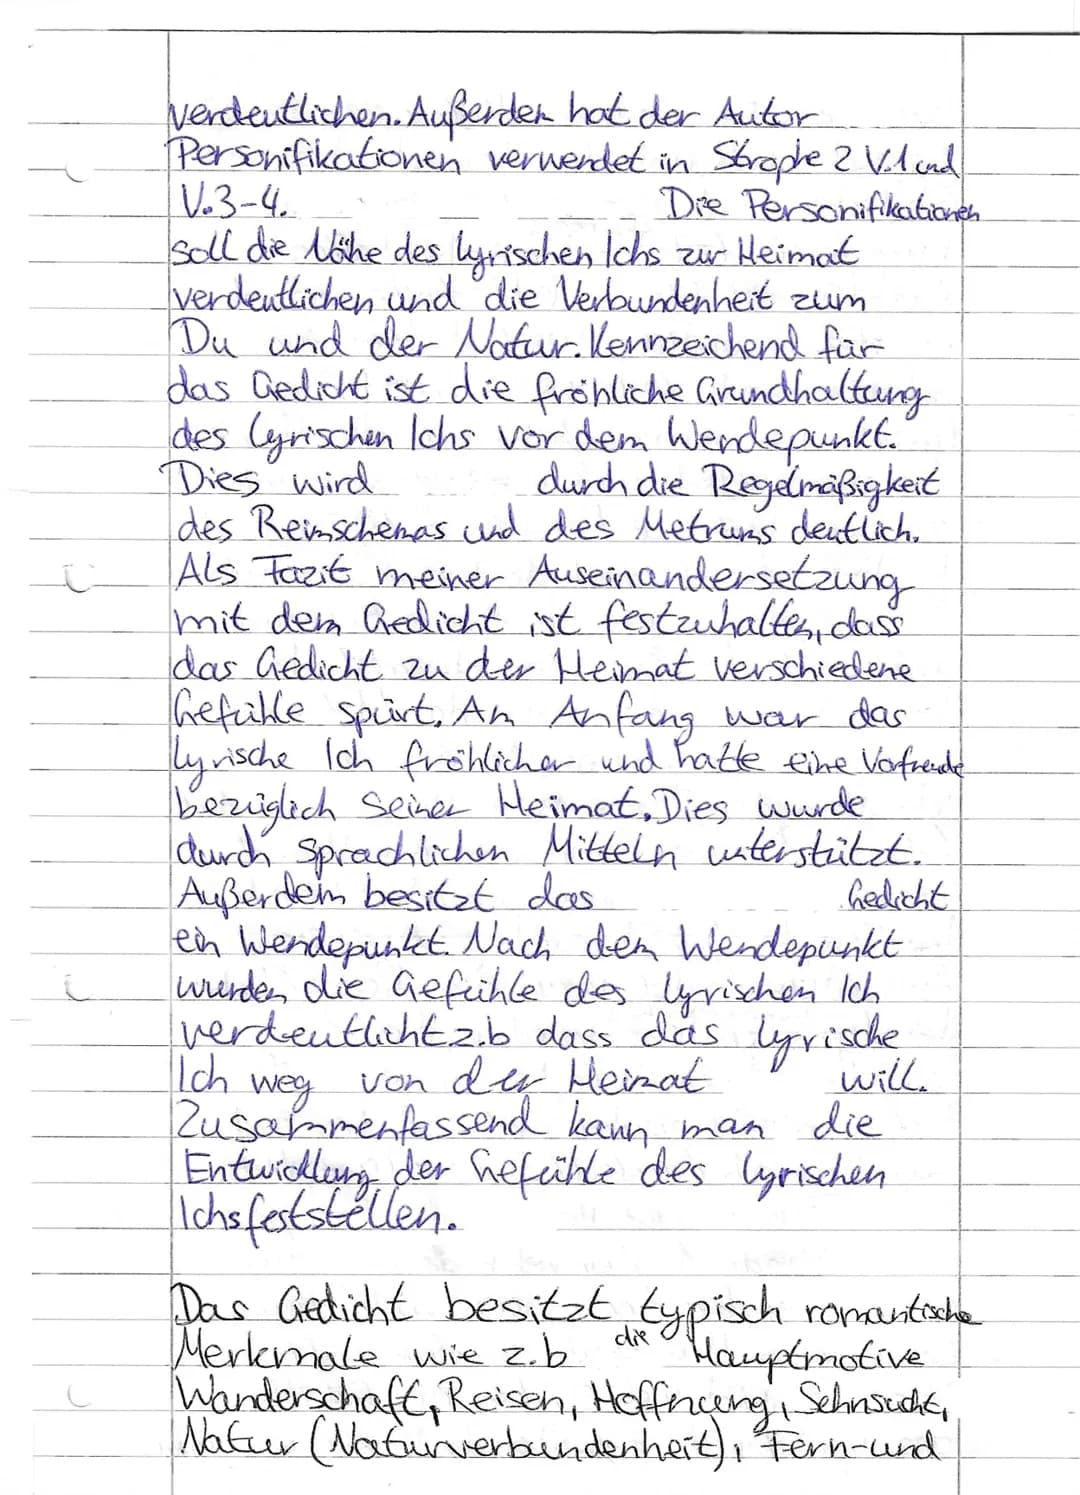 verdeutlichen. Außerdem hat der Autor
Personifikationen verwendet in Strophe 2 V.1 und
V.3-4. Die Personifikationen
soll die Nähe des lyrischen Ichs zur Heimat
verdeutlichen und die Verbundenheit zum
Du und der Natur. Kennzeichend für
das Gedicht ist die fröhliche Grundhaltung
des lyrischen Ichs vor dem Wendepunkt.
Dies wird durch die Regelmäßigkeit
des Reimschemas und des Metrums deutlich.
Als Fazit meiner Auseinandersetzung
mit dem Gedicht ist festzuhalten, dass
das Gedicht zu der Heimat verschiedene
Gefühle spürt. Am Anfang war das
lyrische Ich fröhlicher und hatte eine Vorfreude
bezüglich seiner Heimat. Dies wurde
durch sprachlichen Mitteln unterstützt.
Außerdem besitzt das Gedicht
ein Wendepunkt. Nach dem Wendepunkt
wurden die Gefühle des lyrischen Ich
verdeutlicht z.b dass das lyrische
Ich weg von der Heimat will.
Zusammenfassend kann man die
Entwicklung der Gefühle des lyrischen
Ichs feststellen.
Das Gedicht besitzt typisch romantische
Merkmale wie z.b die Hauptmotive
Wanderschaft, Reisen, Hoffnung, Sehnsucht,
Natur (Naturverbundenheit), Fern-und